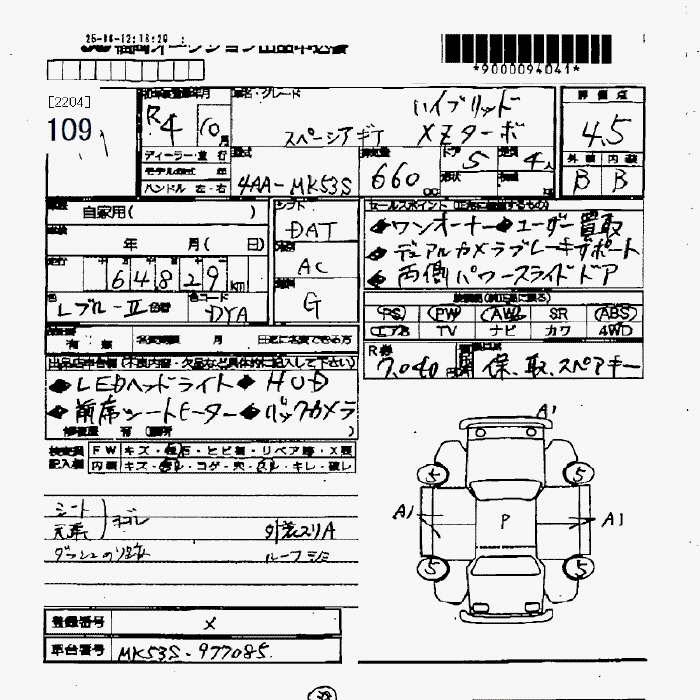 *9000094041*
[2204]
109
車名・グレード
評価点
R4 10月
ハイブリッド
スペーシアギア XZターボ
4.5
外装 内装
B B
ディーラー・並行
モデル 年
ハンドル 左・右
4AA-MK53S
660
ドア 5
定員 4人
自家用( )
年 月( 日)
64829 km
Lブルー-Ⅱ
色コード DYA
シフト DAT
AC
G
ワンオーナー ユーザー買取
デュアルカメラブレーキサポート
両側パワースライドドア
PS PW AW SR ABS
エアB TV ナビ カワ 4WD
有 無 名変期限 月 日迄に名変できる方
R券 7,040
保、取、スペアキー
LEDヘッドライト HUD
前席シートヒーター バックカメラ
修復歴 有 (箇所 )
検査員記入欄
FW キズ・飛石・ヒビ補・リペア跡・X要
内装 キズ・コゲ・穴・キレ・破レ
シート
天張
ヨゴレ
外装スリA
ルーフ
A1
5 5
A1 P A1
5 5
登録番号 X
車台番号 MK53S-977085